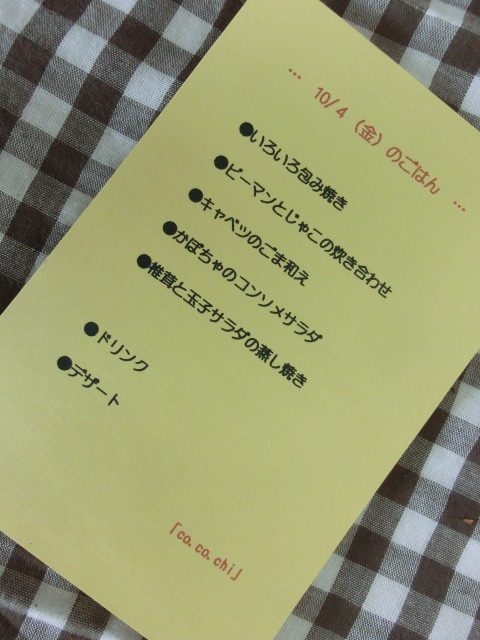 … 10/4（金）のごはん …
●いろいろ包み焼き
●ピーマンとじゃこの炊き合わせ
●キャベツのごま和え
●かぼちゃのコンソメサラダ
●椎茸と玉子サラダの蒸し焼き
●ドリンク
●デザート
「co.co.chi」